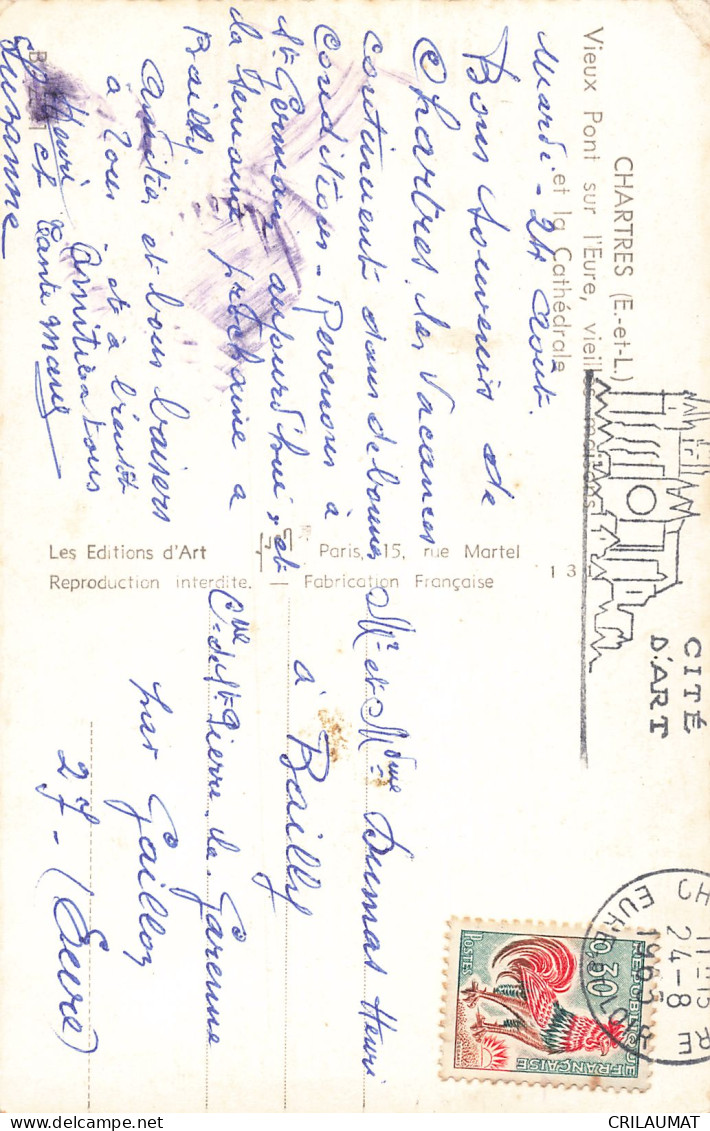 CHARTRES (E.-et-L.)
Vieux Pont sur l'Eure, vieilles maisons
et la Cathédrale
Mardi - 24 Aout.
Bons souvenirs de
Chartres. les Vacances
continuent dans de bonnes
conditions - Revenons à
St Germain aujourd'hui, et
la semaine prochaine a
Bailly.
Amitiés et bons baisers
a tous et à bientôt
Amitiés a tous
Henri et Tante
Suzanne
Les Editions d'Art Paris, 15, rue Martel
Reproduction interdite. — Fabrication Française
13
Mr et Mdme Dumas Henri
à Bailly
Cne de St Pierre la Garenne
par Gaillon
27 - (Eure)
CITÉ
D'ART
24-8
1965
EURE
REPUBLIQUE FRANÇAISE
0,30
POSTES
CRILAUMAT